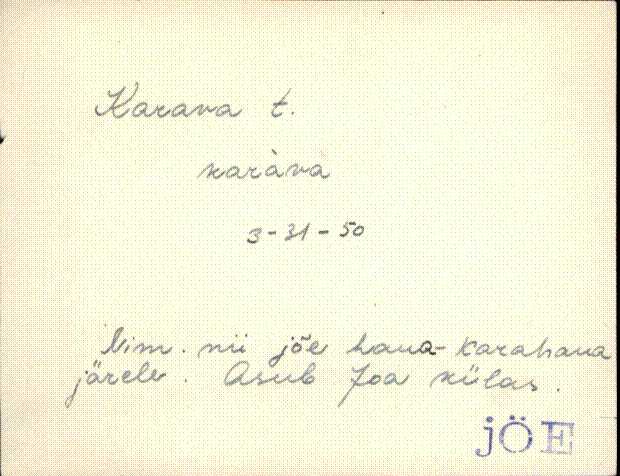 Karava t.
karàva
3-31-50
Nim. nii jõe haua- Karahaua
järele. Asub Joa külas.
JÕE